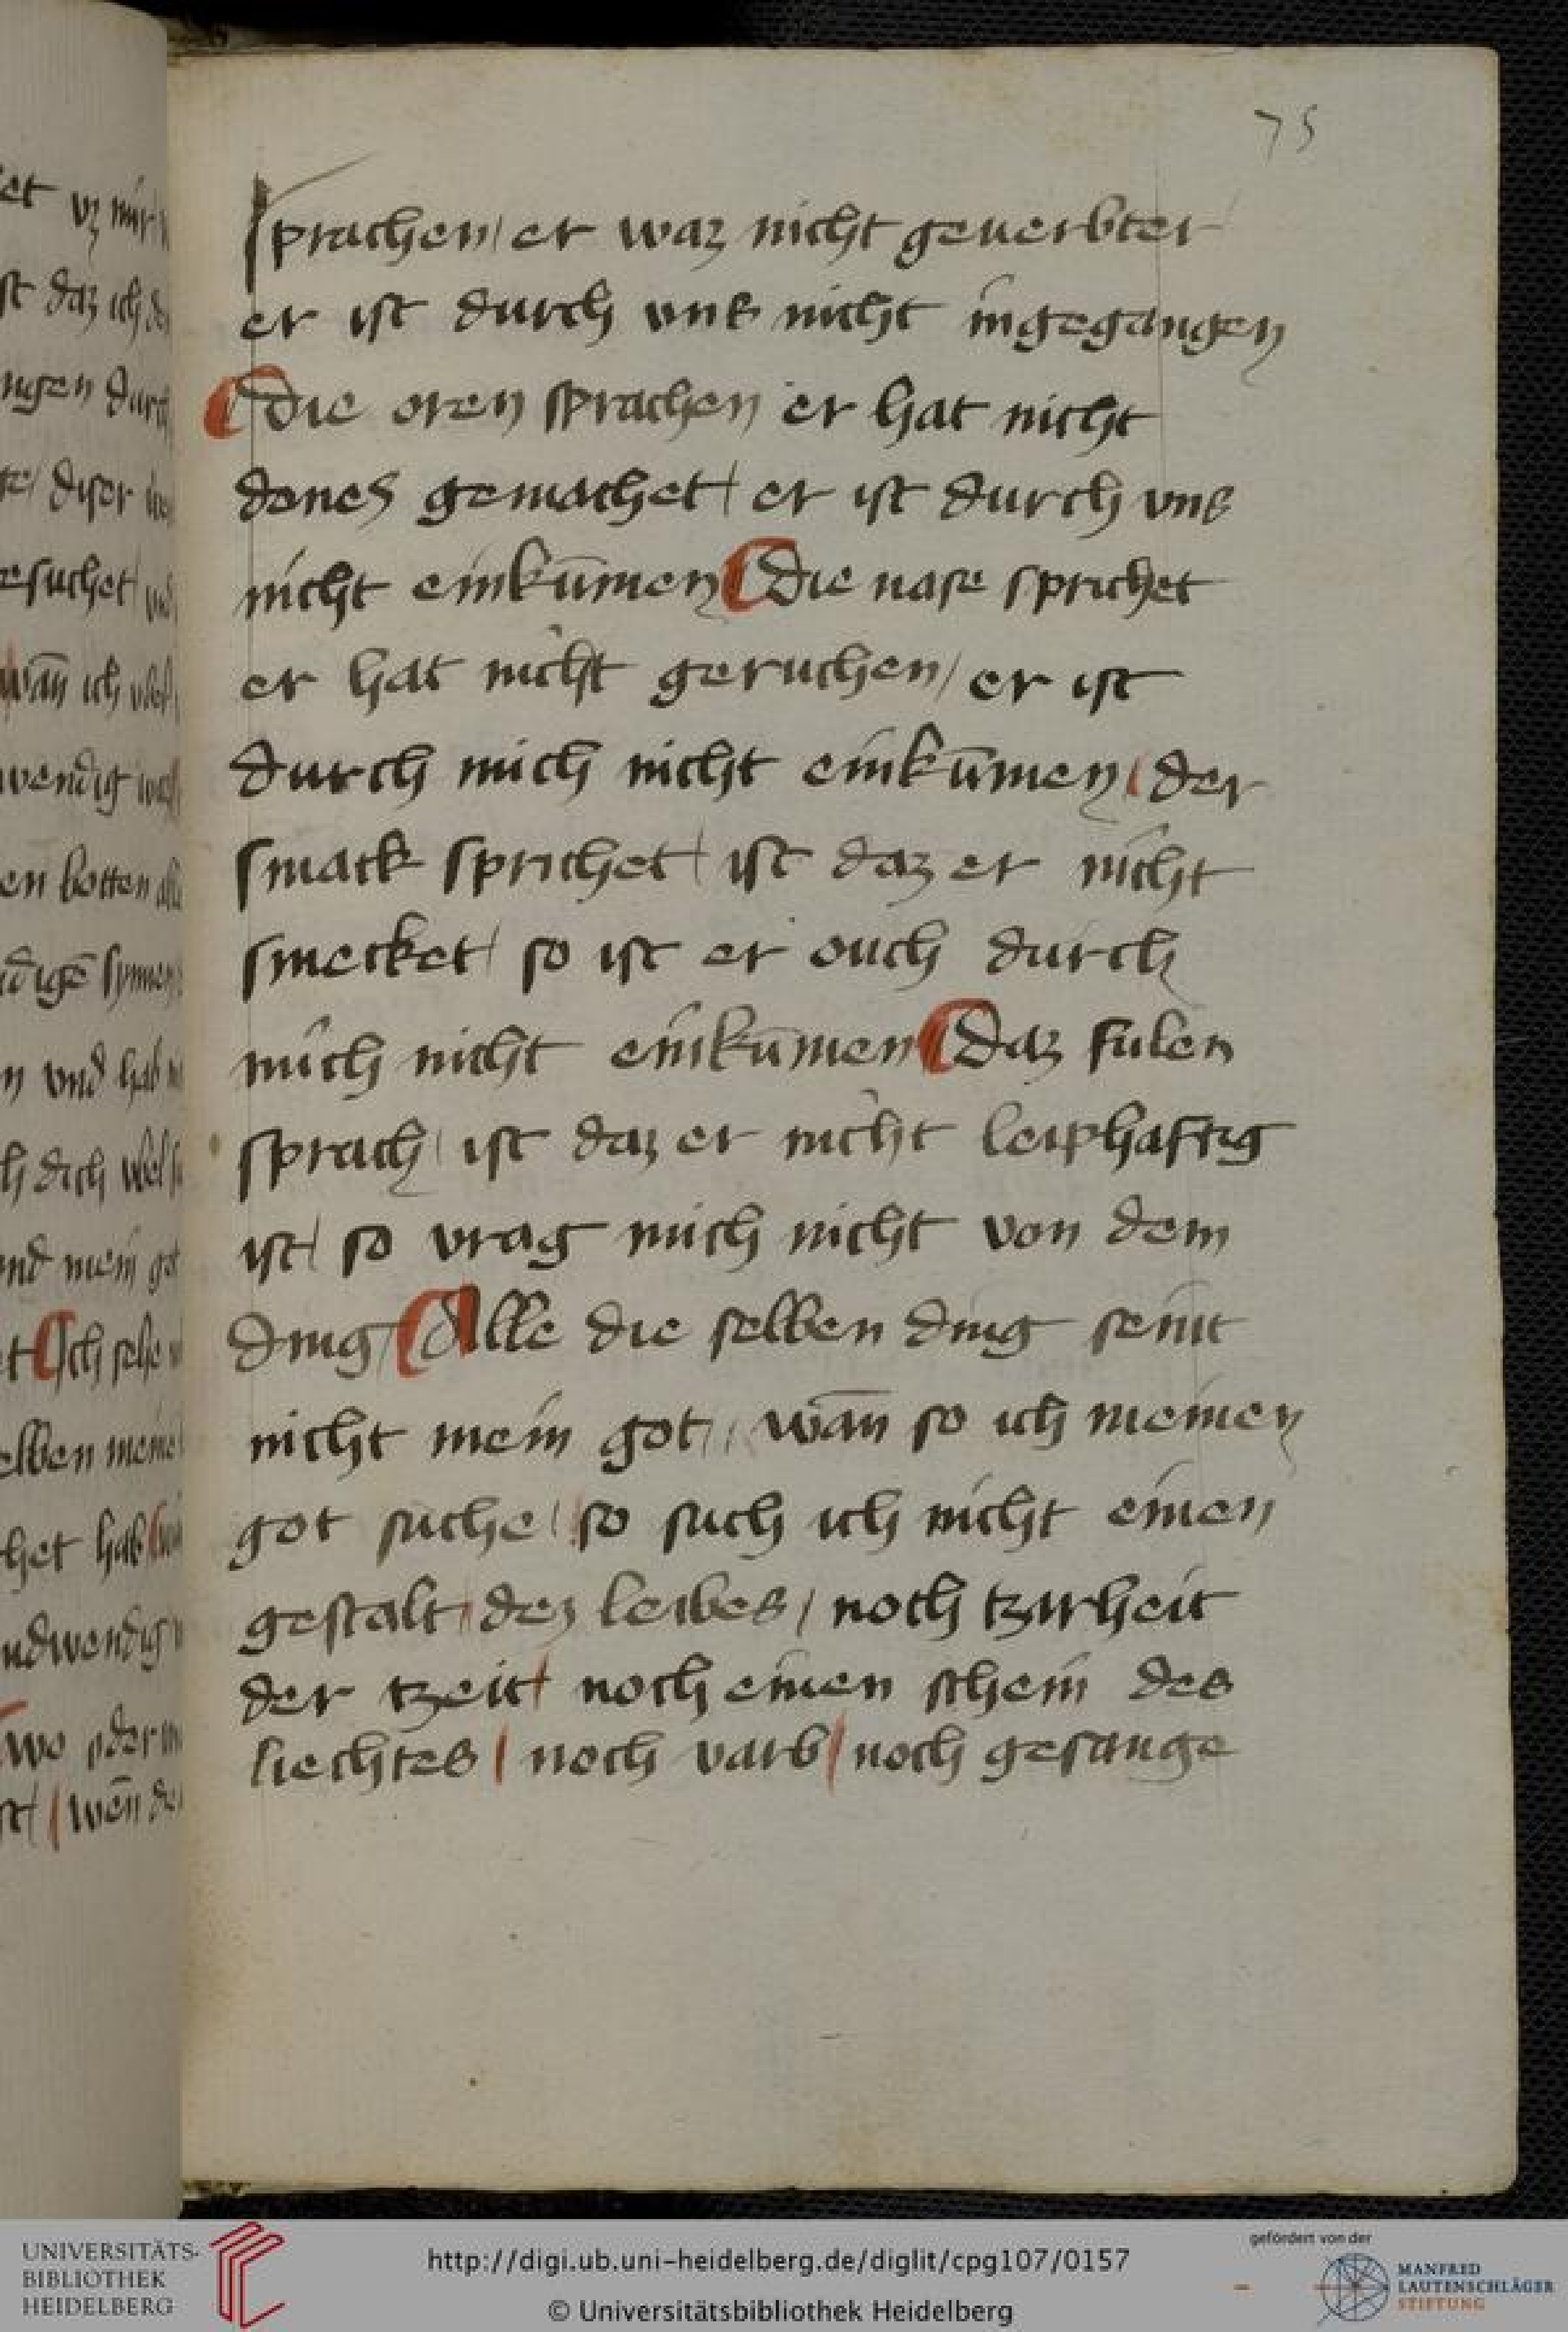 75
sprachen / er waz nicht geuerbter
er ist durch vns nicht ingegangen
die oren sprachen er hat nicht
dones gemachet / er ist durch vns
nicht einkūmen die nase sprichet
er hat nicht geruchen / er ist
durch mich nicht einkūmen / der
smack sprichet / ist daz er nicht
smecket / so ist er ouch durch
mich nicht einkūmen daz fulen
sprach / ist daz er nicht leiphaftig
ist / so vrag mich nicht von dem
ding / Alle die selben ding seint
nicht mein got / wān so ich meinen
got suche / so such ich nicht einen
gestalt / dez leibes / noch tzarheit
der tzeit / noch einen schein des
liechtes / noch varb / noch gesange
UNIVERSITÄTS-
BIBLIOTHEK
HEIDELBERG
http://digi.ub.uni-heidelberg.de/diglit/cpg107/0157
© Universitätsbibliothek Heidelberg
gefördert von der
MANFRED
LAUTENSCHLÄGER
STIFTUNG